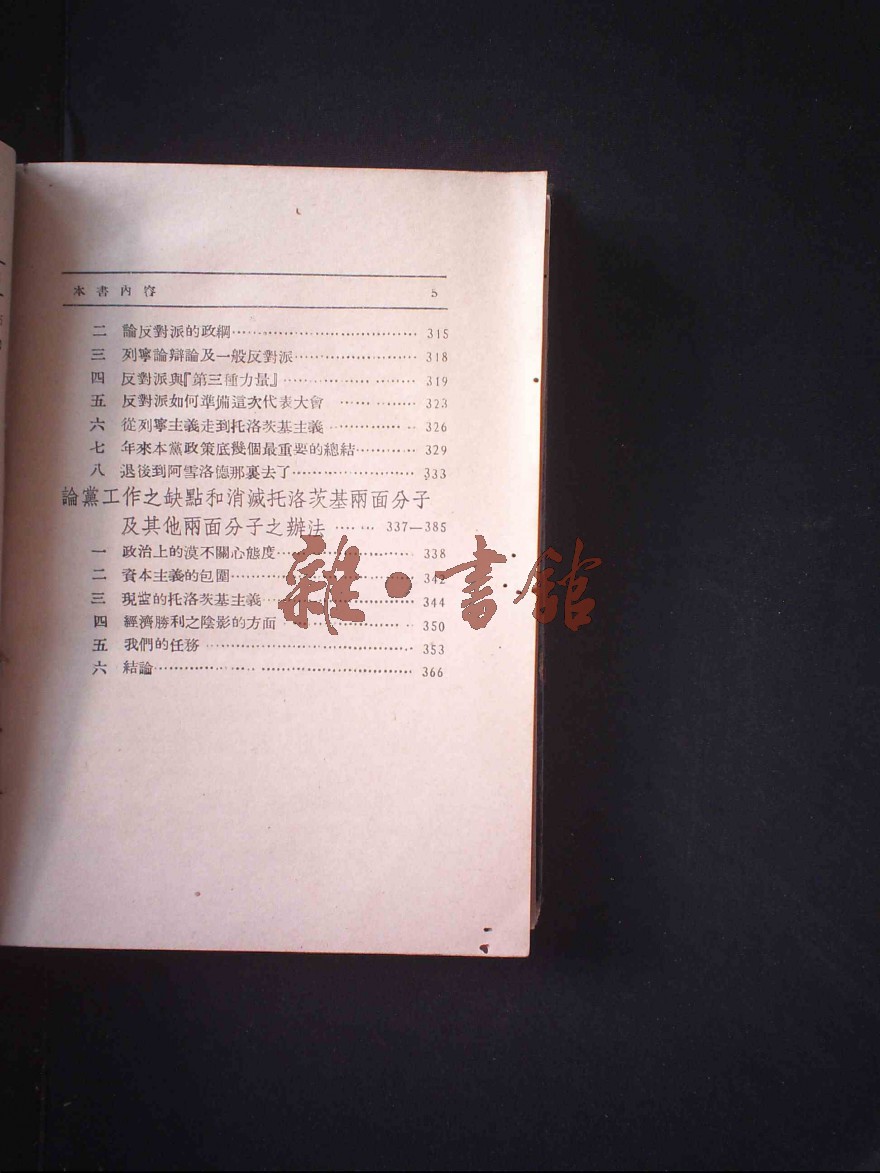 本書內容 5
二 論反對派的政綱 315
三 列寧論辯論及一般反對派 318
四 反對派與『第三種力量』 319
五 反對派如何準備這次代表大會 323
六 從列寧主義走到托洛茨基主義 326
七 年來本黨政策底幾個最重要的總結 329
八 退後到阿雪洛德那裏去了 333
論黨工作之缺點和消滅托洛茨基兩面分子
及其他兩面分子之辦法 337—385
一 政治上的漠不關心態度 338
二 資本主義的包圍 342
三 現當的托洛茨基主義 344
四 經濟勝利之陰影的方面 350
五 我們的任務 353
六 結論 366
雜·書館